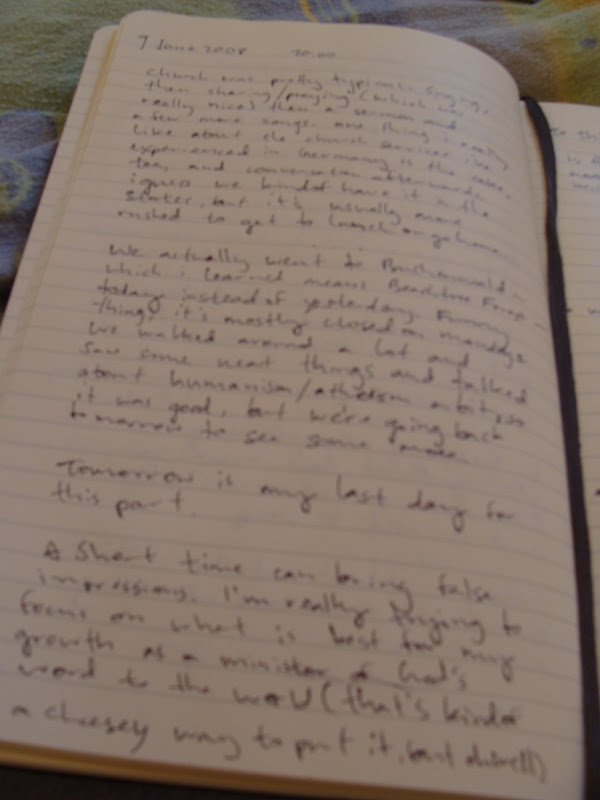 7 June 2008 20:00
church was pretty typical. Singing,
then sharing/praying (which was
really nice) then a sermon and
a few more songs. one thing i really
like about the church services i've
experienced in Germany is the cake,
tea, and conversation afterwards.
i guess we kindof have it in the
states, but it's usually more
rushed to get to lunch or go home.
We actually went to Buchenwald –
which i learned means Beechtree Forest –
today instead of yesterday. Funny
thing, it's mostly closed on mondays.
We walked around a lot and
saw some neat things and talked
about humanism/atheism a bit, so
it was good, but we're going back
tomorrow to see some more.
Tomorrow is my last day for
this part.
A short time can bring false
impressions. I'm really trying to
focus on what is best for my
growth as a minister of God's
word to the world (that's kindof
a cheesey way to put it, but ohwell)
To Thi